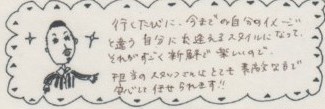 行くたびに、今までの自分のイメージ
と違う自分に出逢えるスタイルになって、
それがすごく新鮮で楽しいので、
担当のスタッフさんはとても素敵な方で
安心して任せられます!!